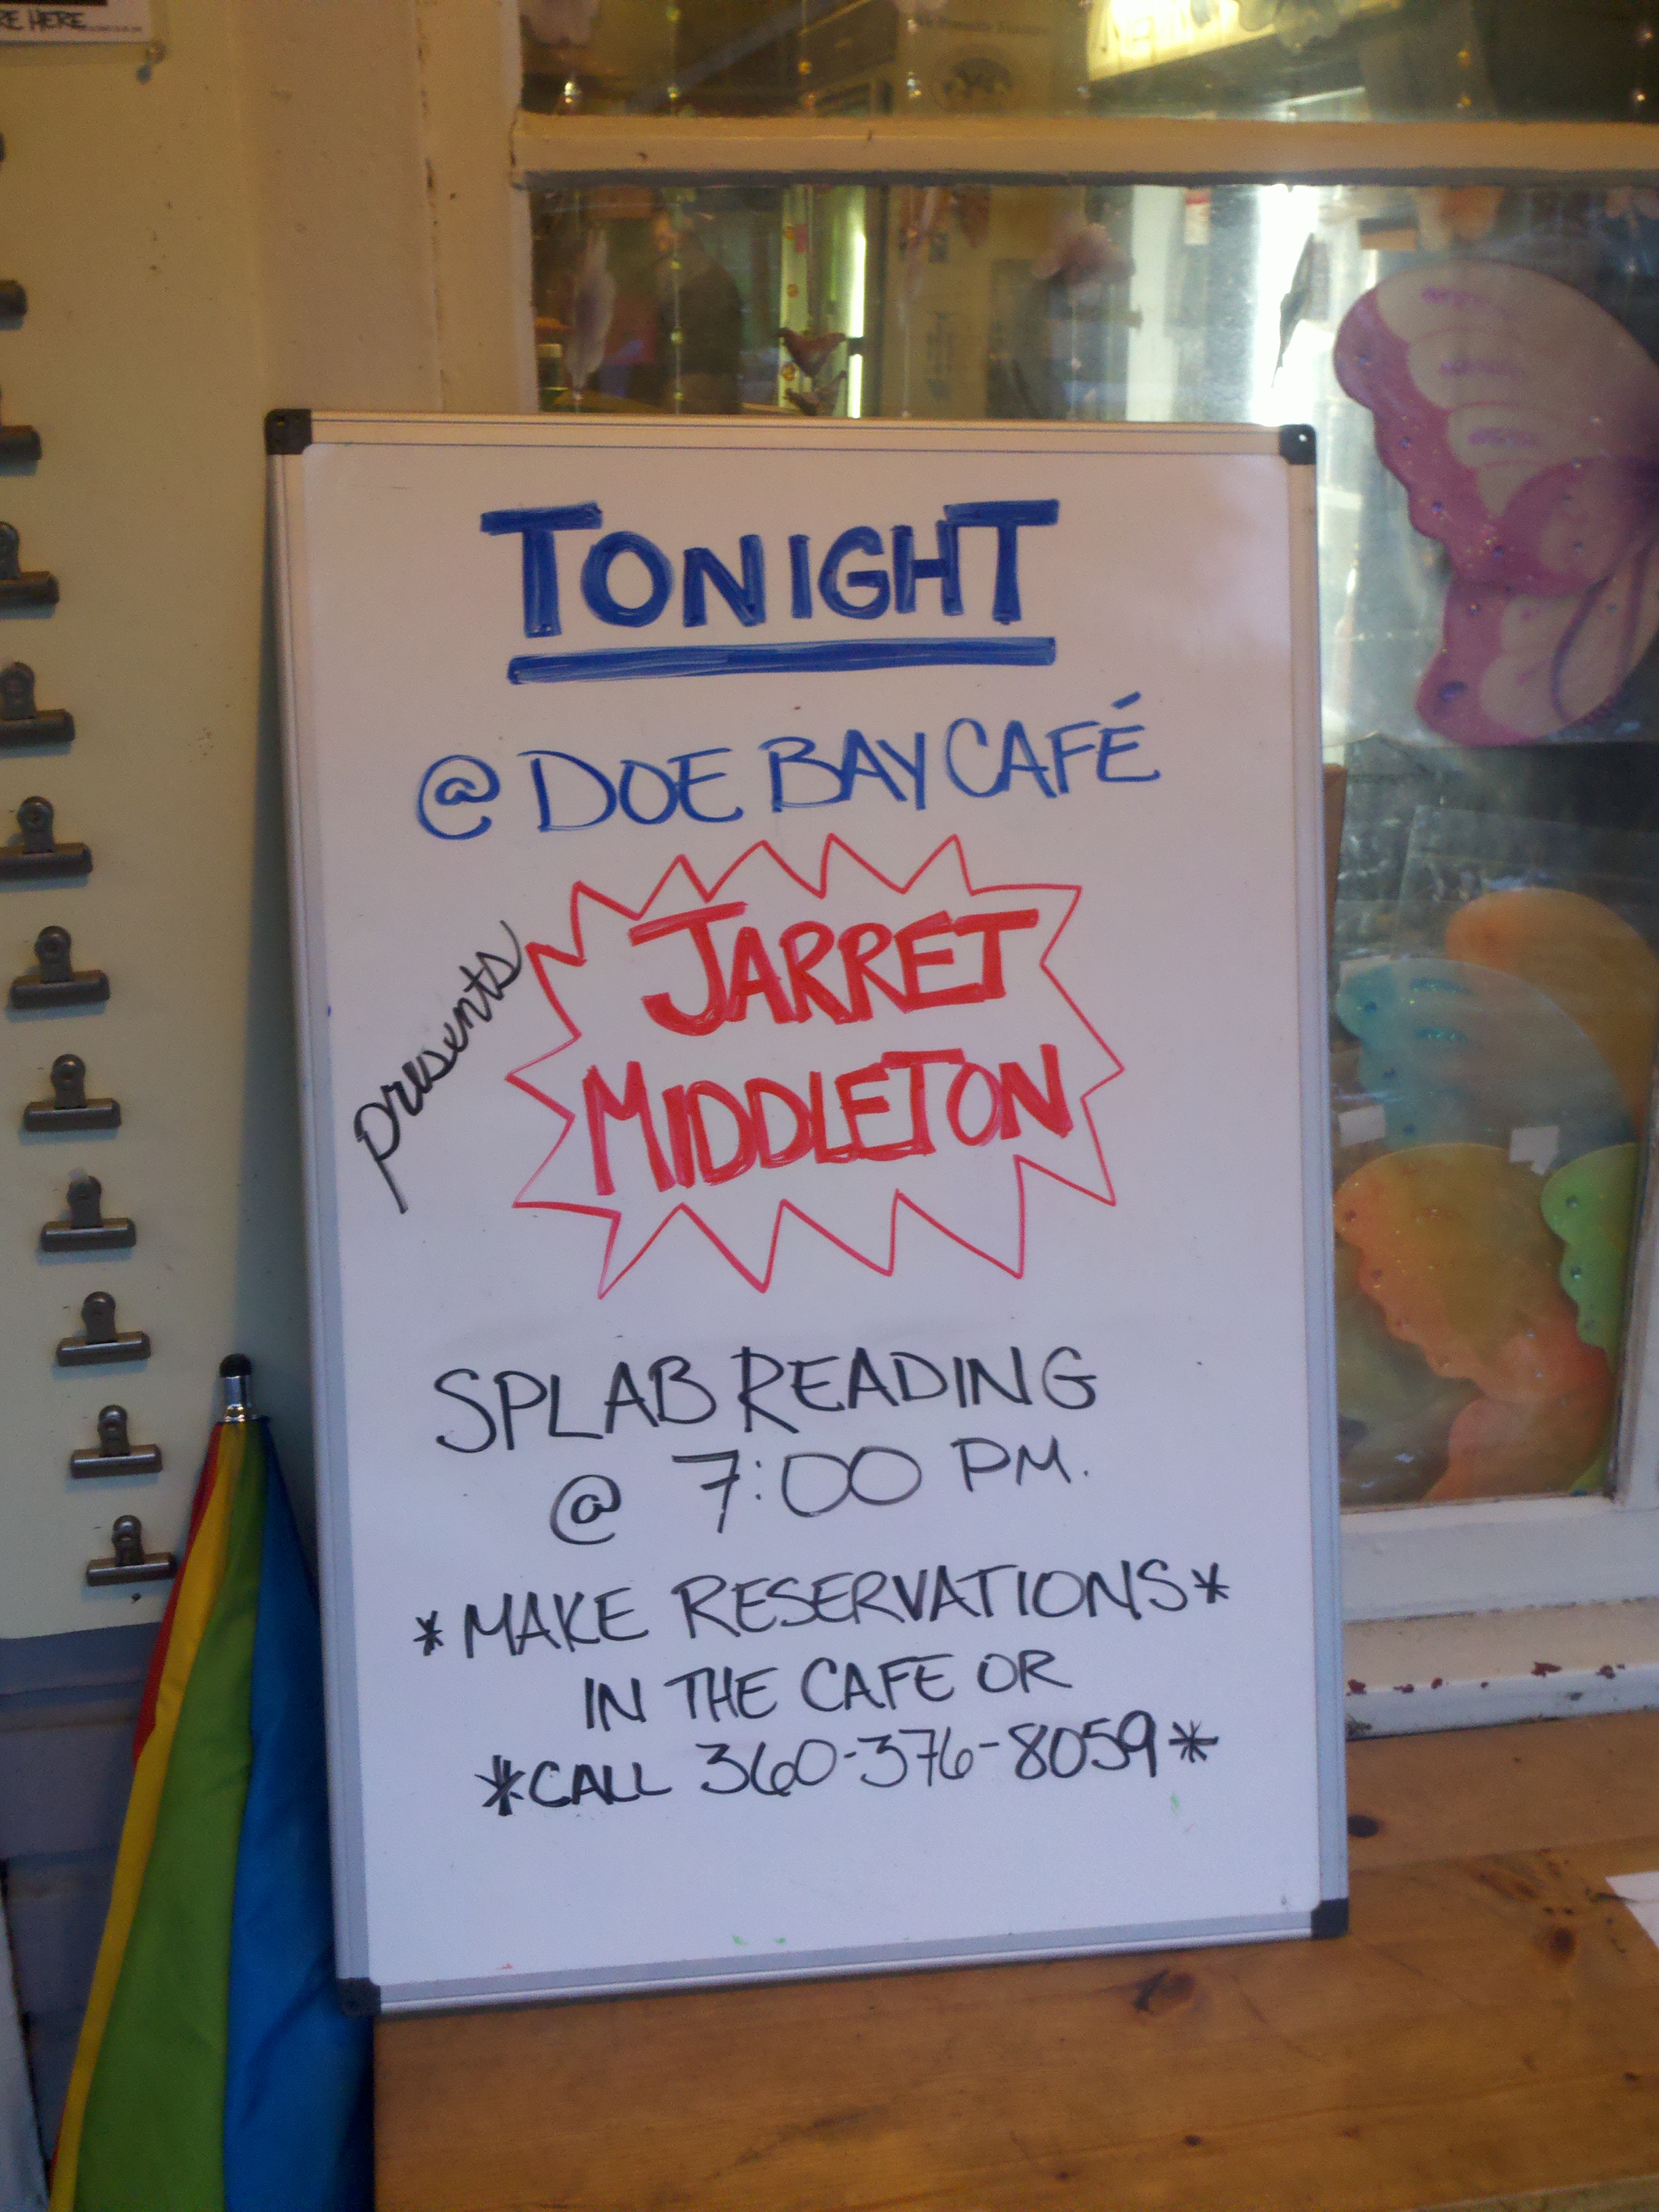 RE HERE
TONIGHT
@ DOE BAY CAFÉ
presents
JARRET
MIDDLETON
SPLAB READING
@ 7:00 PM.
*MAKE RESERVATIONS*
IN THE CAFE OR
*CALL 360-376-8059*